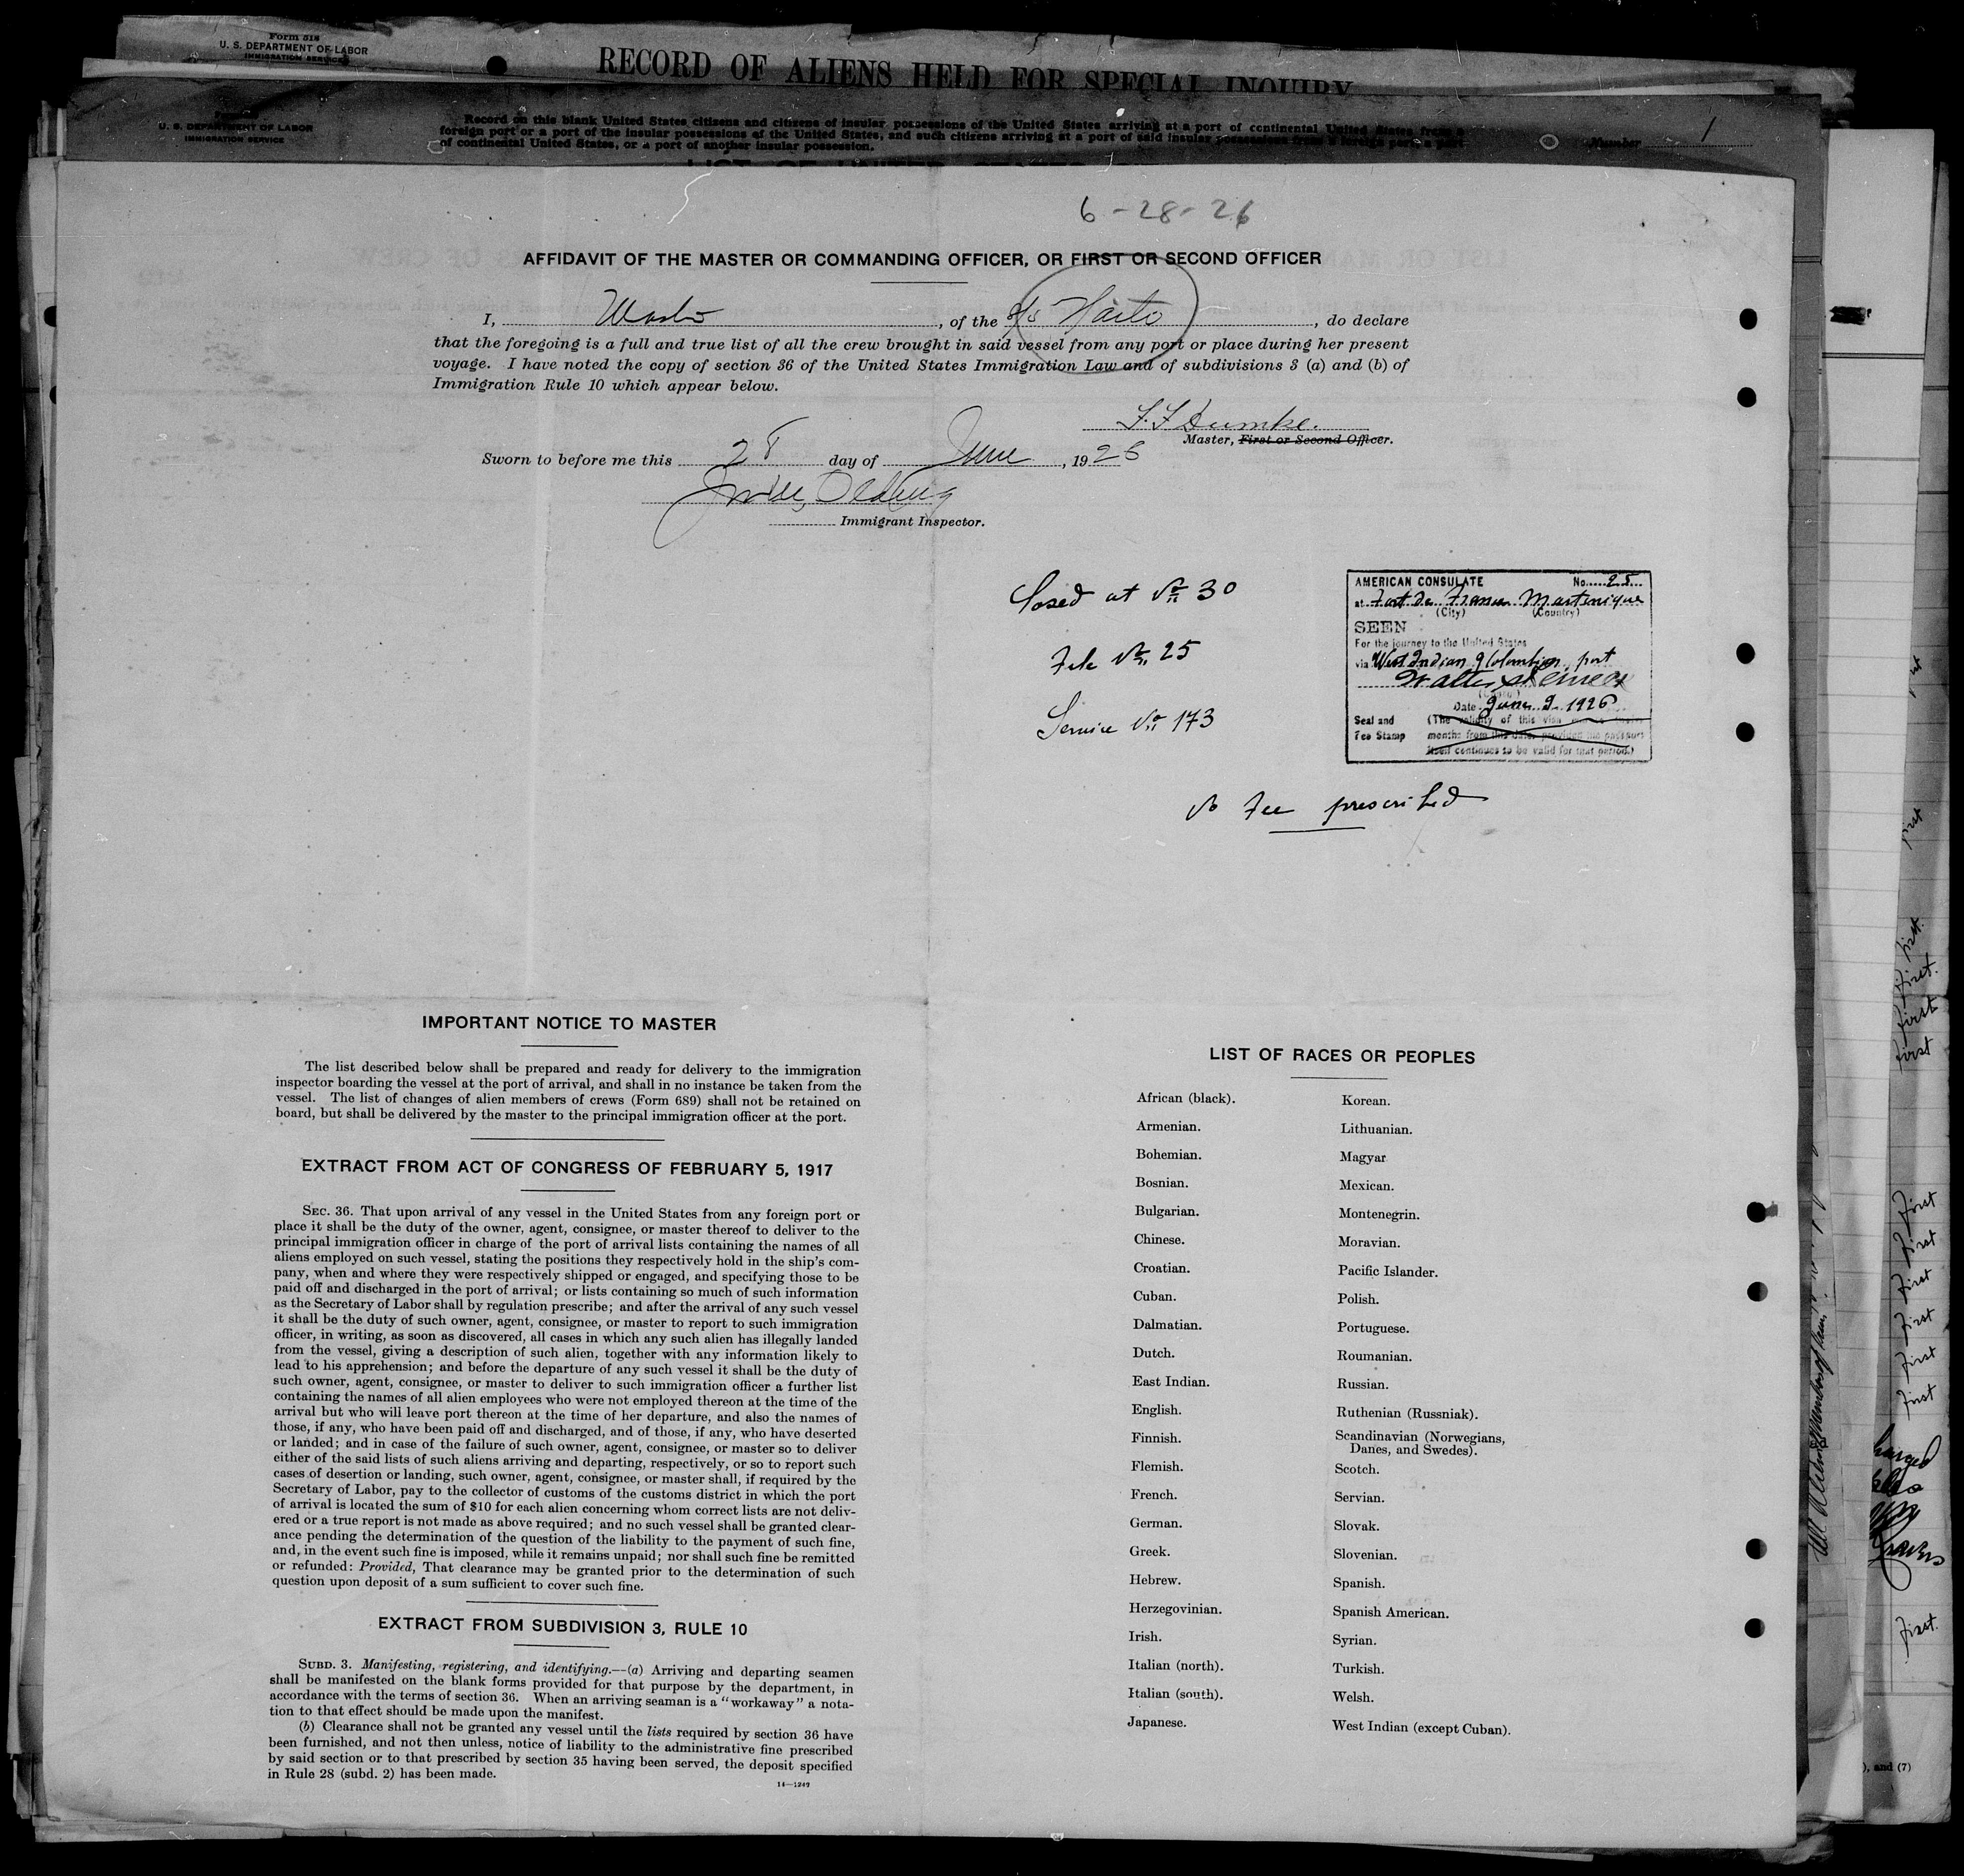 Form 518
U. S. DEPARTMENT OF LABOR
IMMIGRATION SERVICE
RECORD OF ALIENS HELD FOR SPECIAL INQUIRY
U. S. DEPARTMENT OF LABOR
IMMIGRATION SERVICE
Record on this blank United States citizens and citizens of insular possessions of the United States arriving at a port of continental United States from a
foreign port or a port of the insular possessions of the United States, and such citizens arriving at a port of said insular possessions from a foreign port, a port
of continental United States, or a port of another insular possession.
Number 1
6-28-26
AFFIDAVIT OF THE MASTER OR COMMANDING OFFICER, OR FIRST OR SECOND OFFICER
I, Master, of the S/S Haiti, do declare
that the foregoing is a full and true list of all the crew brought in said vessel from any port or place during her present
voyage. I have noted the copy of section 36 of the United States Immigration Law and of subdivisions 3 (a) and (b) of
Immigration Rule 10 which appear below.
Master, First or Second Officer.
Sworn to before me this 28 day of June, 1926
Immigrant Inspector.
Closed at No 30
File No 25
Service No 173
AMERICAN CONSULATE No. 25
at Fort de France Martinique
(City) (Country)
SEEN
For the journey to the United States
via West Indian & Colombian port
Date June 9 1926
Seal and (The validity of this visa
Fee Stamp months from this date, provided the passport
itself continues to be valid for that period.)
No Fee prescribed
IMPORTANT NOTICE TO MASTER
The list described below shall be prepared and ready for delivery to the immigration
inspector boarding the vessel at the port of arrival, and shall in no instance be taken from the
vessel. The list of changes of alien members of crews (Form 689) shall not be retained on
board, but shall be delivered by the master to the principal immigration officer at the port.
EXTRACT FROM ACT OF CONGRESS OF FEBRUARY 5, 1917
SEC. 36. That upon arrival of any vessel in the United States from any foreign port or
place it shall be the duty of the owner, agent, consignee, or master thereof to deliver to the
principal immigration officer in charge of the port of arrival lists containing the names of all
aliens employed on such vessel, stating the positions they respectively hold in the ship's com-
pany, when and where they were respectively shipped or engaged, and specifying those to be
paid off and discharged in the port of arrival; or lists containing so much of such information
as the Secretary of Labor shall by regulation prescribe; and after the arrival of any such vessel
it shall be the duty of such owner, agent, consignee, or master to report to such immigration
officer, in writing, as soon as discovered, all cases in which any such alien has illegally landed
from the vessel, giving a description of such alien, together with any information likely to
lead to his apprehension; and before the departure of any such vessel it shall be the duty of
such owner, agent, consignee, or master to deliver to such immigration officer a further list
containing the names of all alien employees who were not employed thereon at the time of the
arrival but who will leave port thereon at the time of her departure, and also the names of
those, if any, who have been paid off and discharged, and of those, if any, who have deserted
or landed; and in case of the failure of such owner, agent, consignee, or master so to deliver
either of the said lists of such aliens arriving and departing, respectively, or so to report such
cases of desertion or landing, such owner, agent, consignee, or master shall, if required by the
Secretary of Labor, pay to the collector of customs of the customs district in which the port
of arrival is located the sum of $10 for each alien concerning whom correct lists are not deliv-
ered or a true report is not made as above required; and no such vessel shall be granted clear-
ance pending the determination of the question of the liability to the payment of such fine,
and, in the event such fine is imposed, while it remains unpaid; nor shall such fine be remitted
or refunded: Provided, That clearance may be granted prior to the determination of such
question upon deposit of a sum sufficient to cover such fine.
EXTRACT FROM SUBDIVISION 3, RULE 10
SUBD. 3. Manifesting, registering, and identifying.—(a) Arriving and departing seamen
shall be manifested on the blank forms provided for that purpose by the department, in
accordance with the terms of section 36. When an arriving seaman is a "workaway" a nota-
tion to that effect should be made upon the manifest.
(b) Clearance shall not be granted any vessel until the lists required by section 36 have
been furnished, and not then unless, notice of liability to the administrative fine prescribed
by said section or to that prescribed by section 35 having been served, the deposit specified
in Rule 28 (subd. 2) has been made.
14—1249
LIST OF RACES OR PEOPLES
African (black).
Armenian.
Bohemian.
Bosnian.
Bulgarian.
Chinese.
Croatian.
Cuban.
Dalmatian.
Dutch.
East Indian.
English.
Finnish.
Flemish.
French.
German.
Greek.
Hebrew.
Herzegovinian.
Irish.
Italian (north).
Italian (south).
Japanese.
Korean.
Lithuanian.
Magyar
Mexican.
Montenegrin.
Moravian.
Pacific Islander.
Polish.
Portuguese.
Roumanian.
Russian.
Ruthenian (Russniak).
Scandinavian (Norwegians,
Danes, and Swedes).
Scotch.
Servian.
Slovak.
Slovenian.
Spanish.
Spanish American.
Syrian.
Turkish.
Welsh.
West Indian (except Cuban).
first
first.
first.
first
first
first
first
first
first
first
first
first.
), and (7)